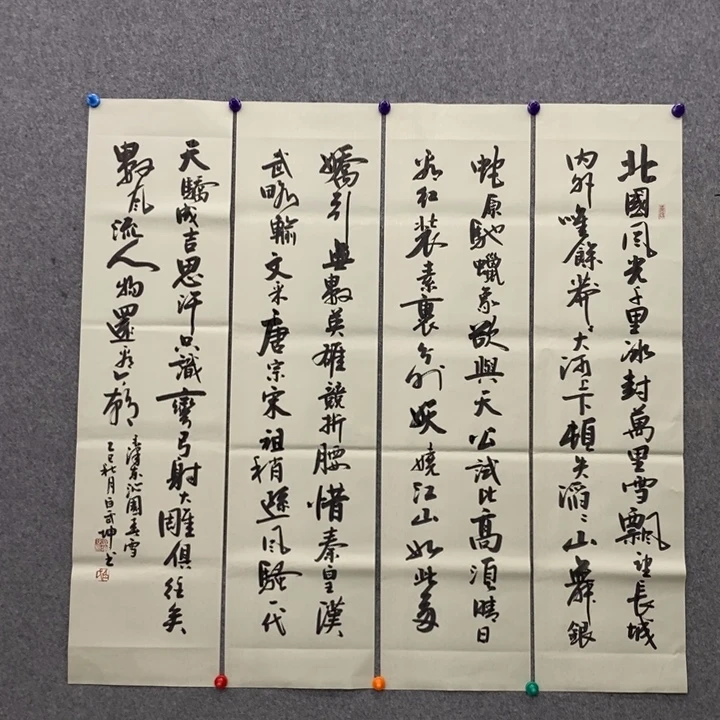 北國風光千里冰封萬里雪飄望長城
内外唯餘莽〻大河上下頓失滔〻山舞銀
蛇原馳蠟象欲與天公試比高須晴日
看紅裝素裹分外妖嬈江山如此多
嬌引無數英雄競折腰惜秦皇漢
武略輸文采唐宗宋祖稍遜風騷一代
天驕成吉思汗只識彎弓射大雕俱往矣
數風流人物還看今朝
毛澤東沁園春雪
乙巳秋月坤書